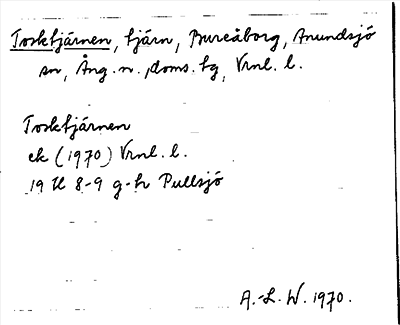 Tosktjärnen, tjärn, Bureåborg, Anundsjö
sn, Ång. n. doms. tg, Vrnl. l.
Tosktjärnen
ek (1970) Vrnl. l.
19 H 8-9 g-h Pullsjö
A.-L. W. 1970.